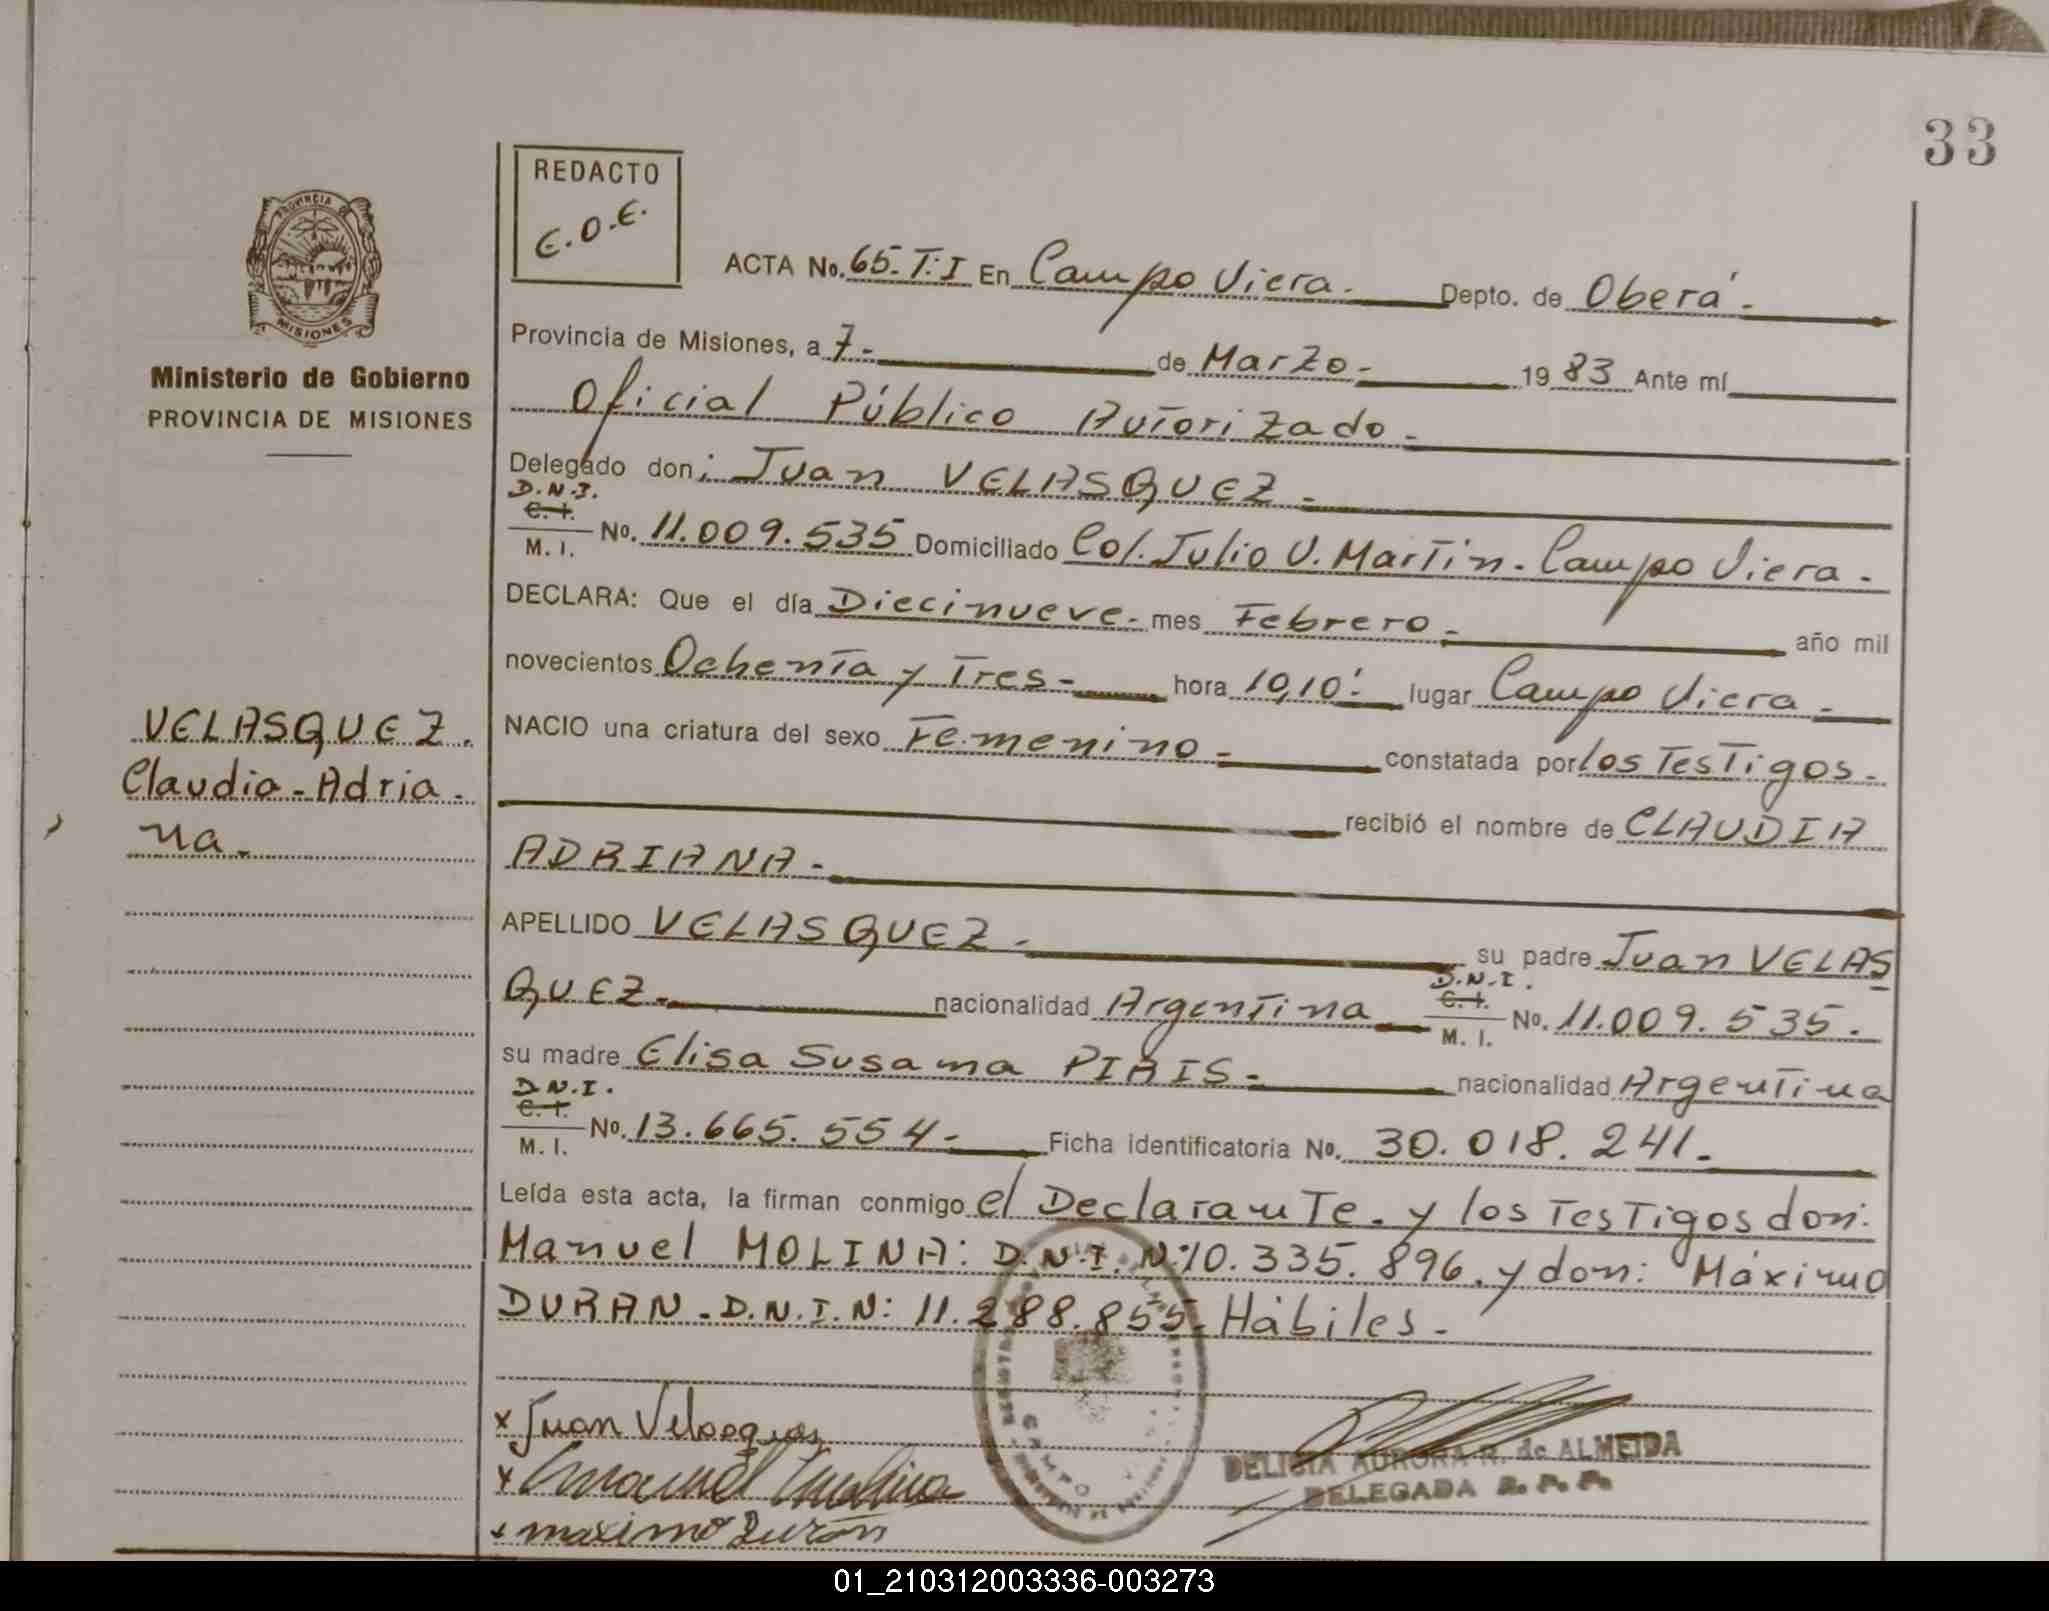 33
REDACTO
E.O.E.
PROVINCIA
MISIONES
Ministerio de Gobierno
PROVINCIA DE MISIONES
ACTA No. 65.T.I En Campo Viera.- Depto. de Oberá.-
Provincia de Misiones, a 7- de Marzo- 19 83 Ante mí
Oficial Público Autorizado-
Delegado don: Juan VELASQUEZ.-
D.N.I.
C. I.
M. I. No. 11.009.535 Domiciliado Col. Julio U. Martin. Campo Viera.
DECLARA: Que el día Diecinueve- mes Febrero- año mil
novecientos Ochenta y Tres- hora 10,10' lugar Campo Viera.-
NACIO una criatura del sexo Femenino- constatada por los Testigos-
recibió el nombre de CLAUDIA
ADRIANA.-
VELASQUEZ.
Claudia-Adria-
na.
APELLIDO VELASQUEZ.- su padre Juan VELAS
QUEZ.- nacionalidad Argentina D.N.I. C. I. M. I. No. 11.009.535.
su madre Elisa Susana PIRIS- nacionalidad Argentina
D.N.I.
C. I.
M. I. No. 13.665.554- Ficha identificatoria No. 30.018.241.-
Leída esta acta, la firman conmigo el Declarante. y los Testigos don:
Manuel MOLINA: D.N.I. N:10.335.896. y don: Máximo
DURAN-D.N.I.N: 11.288.855. Hábiles-
x Juan Velasquez
x Manuel Molina
x maximo Durán
CAMPO
DELICIA AURORA R. de ALMEIDA
DELEGADA R. P. P.
01_210312003336-003273